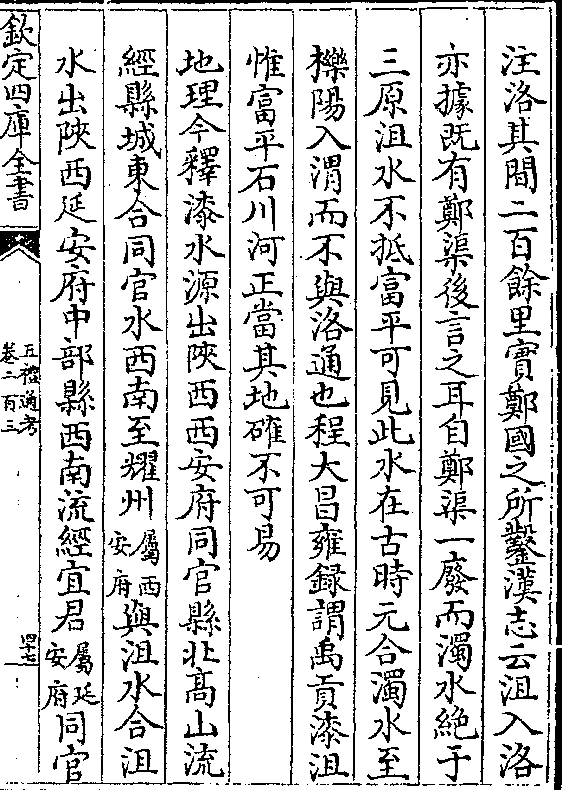 注洛其間二百餘里實鄭國之所鑿漢志云沮入洛
亦據既有鄭渠後言之耳自鄭渠一廢而濁水絶于
三原沮水不抵富平可見此水在古時元合濁水至
櫟陽入渭而不與洛通也程大昌雍録謂禹貢漆沮
惟富平石川河正當其地確不可易
地理今釋漆水源出陜西西安府同官縣北髙山流
經縣城東合同官水西南至耀州屬西安府與沮水合沮
水出陜西延安府中部縣西南流經宜君屬延安府同官
欽定四庫全書
五禮通考
卷二百三
四十七